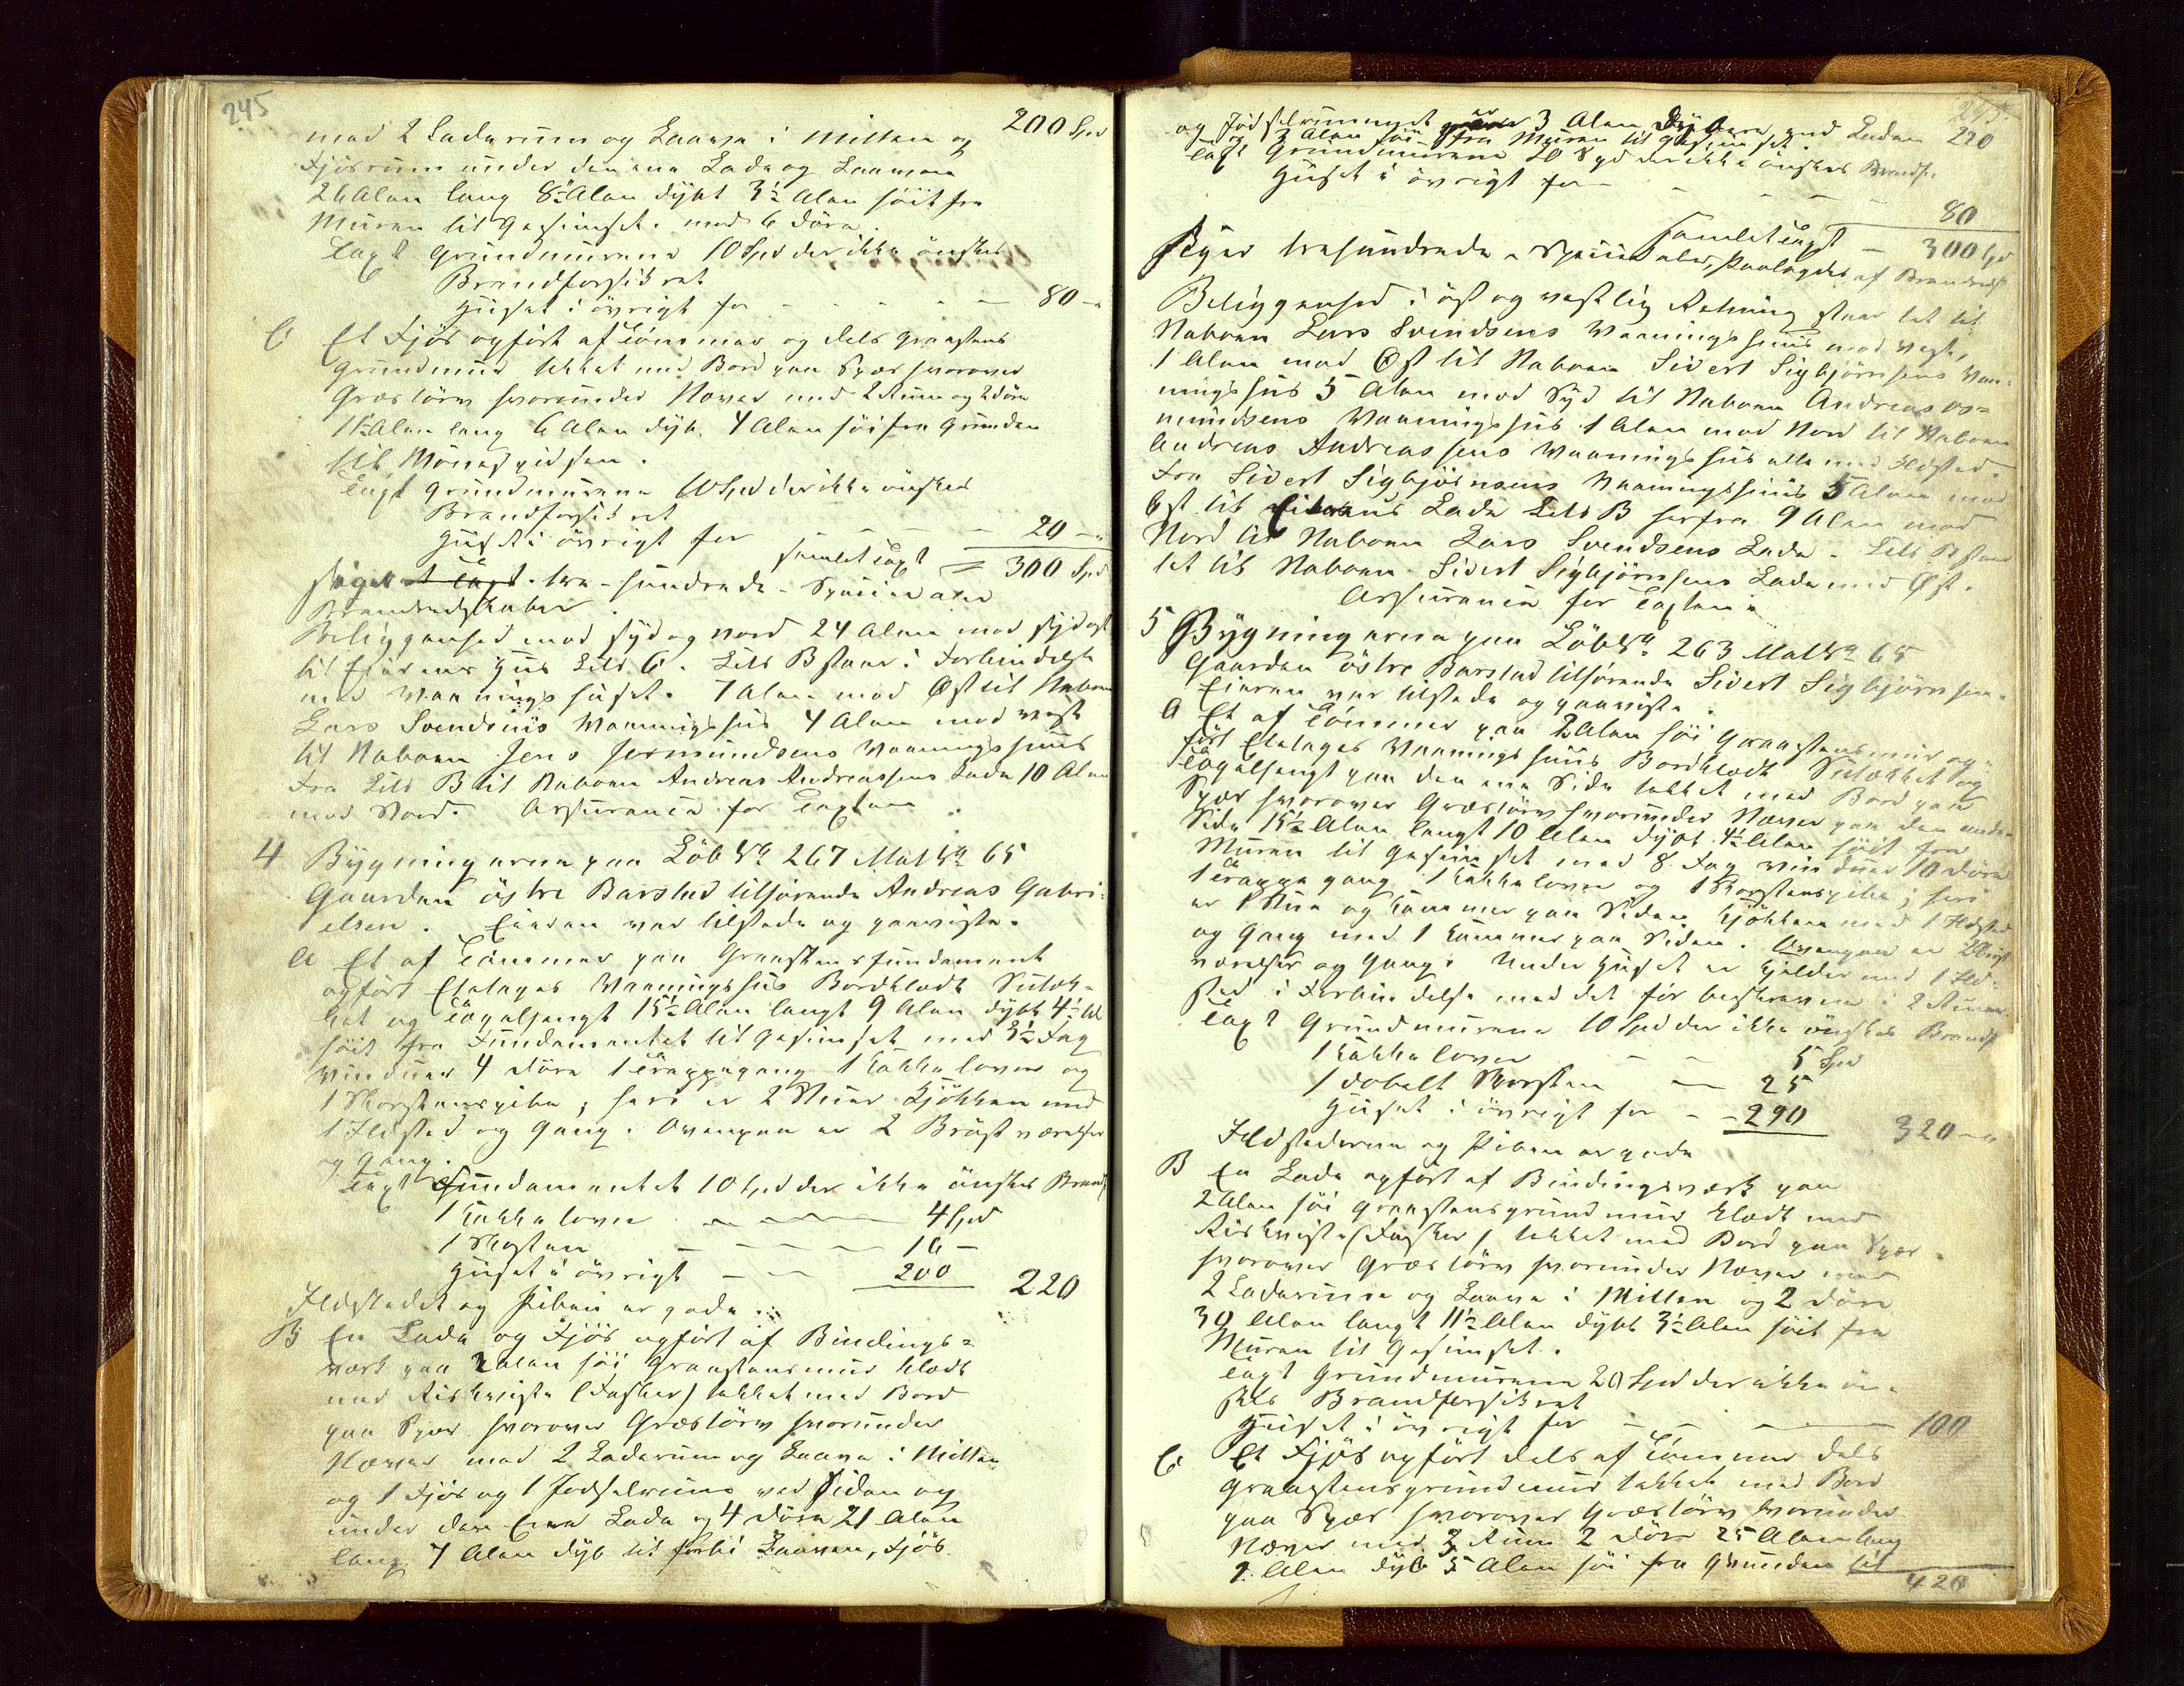 245
med 2 Laderum og Laave i Mitten og 200 Spd
Fjøsrum under den ene Lade og Laaven
26 Alen lang 8½ Alen dybt 3½ Alen höit fra
Muren til Gesimset. med 6 Döre.
Taxt Grundmurene 10 Spd der ikke önskes
Brandforsikret
Huset i övrigt for - - - - 80 -
C Et Fjös opfört af Tömmer og dels Graastens
Grundmur tækket med Bord paa Spær hvorover
Græstörv hvorunder Næver med 2 Rum og 2 Döre
11 Alen lang 6 Alen dyb. 4 Alen höi fra Grunden
til Mönespidsen.
Taxt Grundmurene 10 Spd der ikke önskes
Brandforsikret
Huset i övrigt for - - - 20 -
samlet Taxt = 300 Spd
siger tre-hundrede - Speciedaler
Brandredskaber.
Beliggenhed mod Syd og Nord 24 Alen mod Sydost
til Eierens Hus Litr C. Litr B staar i Forbindelse
med Vaaningshuset. 7 Alen mod Øst til Naboen
Lars Svendsens Vaaningshus 4 Alen mod Vest
til Naboen Jens Jermundsens Vaaningshuus
Fra Litr B til Naboen Andreas Andreassens Lade 10 Alen
mod Nord. Assurance for Taxten.
4 Bygningerne paa Löb No 267 Mat No 65
Gaarden östre Barstad tilhörende Andreas Gabri-
elsen. Eieren var tilstede og paaviste.
A Et af Tömmer paa Graastensfundament
opfört Etatages Vaaningshus Bordklædt Sutæk-
ket og Tagalhængt 15½ Alen langt 9 Alen dybt 4½ Al
höit fra Fundamentet til Gesimset med 8½ Fag
Vinduer 4 Döre 1 Trappegang 1 Kakkelovn og
1 Skorstenspibe; heri er 2 Stuer Kjökken med
1 Ildsted og Gang. Ovenpaa er 2 Bröstværelser
og Gang.
Taxt Fundamentet 10 Spd der ikke önskes Brandf
1 Kakkelovn - - - 4 Spd
1 Skorsten - - - 16 -
Huset i övrigt - - 200 220
Ildstedet og Piben er gode.
B En Lade og Fjös opfört af Bindings-
værk paa 2 Alen höi Graastensmur klædt
med Riskviste (Fasker) tækket med Bord
paa Spær hvorover Græstörv hvorunder
Næver med 2 Laderum og Laave i Mitten
og 1 Fjös og 1 Jodselrum ved Siden og
under den Ene Lade og 4 Döre 21 Alen
lang 7 Alen dyb til forbi Laaven, Fjös
og Jödselrummet er 3 Alen Dybere end Laden 220
og 3 Alen höi fra Muren til Gesimset.
Taxt Grundmurene 20 Spd der ikke önskes Brandf.
Huset i övrigt for - - - - 80
samlet Taxt - 300 Spd
Siger trehundrede - Speciedaler, Paalagdes af Brandredsk
Beliggenhed i öst og vestlig Retning staar tet til
Naboen Lars Svendsens Vaaningshuus mod Vest,
1 Alen mod Øst til Naboen Sivert Sigbjörnsens Vaa-
ningshus 5 Alen mod Syd til Naboen Andreas Os-
mundsens Vaaningshus 1 Alen mod Nord til Naboen
Andreas Andreassens Vaaningshus alle med Ildsted.
Fra Sivert Sigbjörnsens Vaaningshuus 5 Alen mod
Øst til Eierens Lade Litr B herfra 9 Alen mod
Nord til Naboen Lars Svendsens Lade. Litr B staar
tet til Naboen Sivert Sigbjörnsens Lade mod Øst.
Assurance for Taxten.
5 Bygningerne paa Löb No 263 Mat No 65
Gaarden östre Barstad tilhörende Sivert Sigbjörnsen.
Eieren var tilstede og paaviste.
A Et af Tömmer paa 2 Alen höi Graastensmur op-
fört Etatages Vaaningshuus Bordklædt Sutækket og
Tagalhængt paa den ene Side tækket med Bord paa
Spær hvorover Græstörv hvorunder Næver paa den anden
Side 15½ Alen langt 10 Alen dybt 4½ Alen höit fra
Muren til Gesimset med 8 Fag Vinduer 10 Döre
1 Trappegang 1 Kakkelovn og 1 Skorstenspibe; heri
er 1 Stue og Kammer paa Siden Kjökken med 1 Ildsted
og Gang med 1 Kammer paa Siden. Ovenpaa er 2 Bröst
værelser og Gang. Under Huset er Kjelder med 1 Ild-
sted i Forbindelse med det för beskrevne i 2 Stuer.
Taxt Grundmurene 10 Spd der ikke önskes Brandf
1 Kakkelovn - - 5 Spd
1 dobelt Skorsten - 25
Huset i övrigt for - - 290 320 -
Ildstederne og Piben er gode
B En Lade opfört af Bindingsværk paa
2 Alen höi Graastensgrundmur klædt med
Riskviste (Fasker) tækket med Bord paa Spær
hvorover Græstörv hvorunder Næver med
2 Laderum og Laave i Mitten og 2 Döre
30 Alen langt 11½ Alen dybt 3½ Alen höit fra
Muren til Gesimset.
Taxt Grundmurene 20 Spd der ikke ön-
skes Brandforsikret
Huset i övrigt for - - - 100
C Et Fjös opfört dels af Tömmer dels
Graastensgrundmur tækket med Bord
paa Spær hvorover Græstörv hvorunder
Næver med 3 Rum 2 Döre 25 Alen lang
9 Alen dyb 5 Alen höi fra Grunden til
420